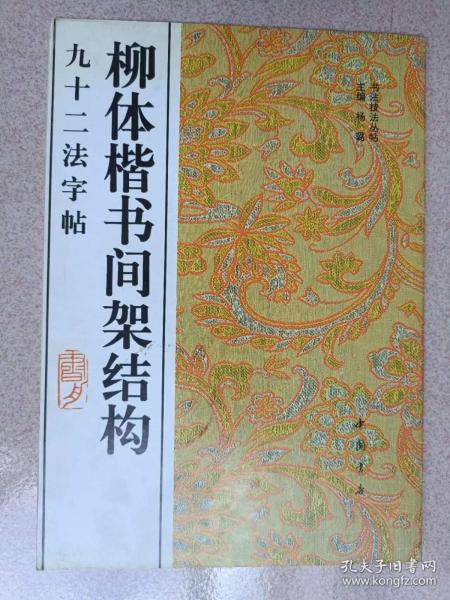 柳体楷书间架结构
九十二法字帖
书法技法丛帖
主编 杨璐
中国书店
孔夫子旧书网
www.kongfz.com